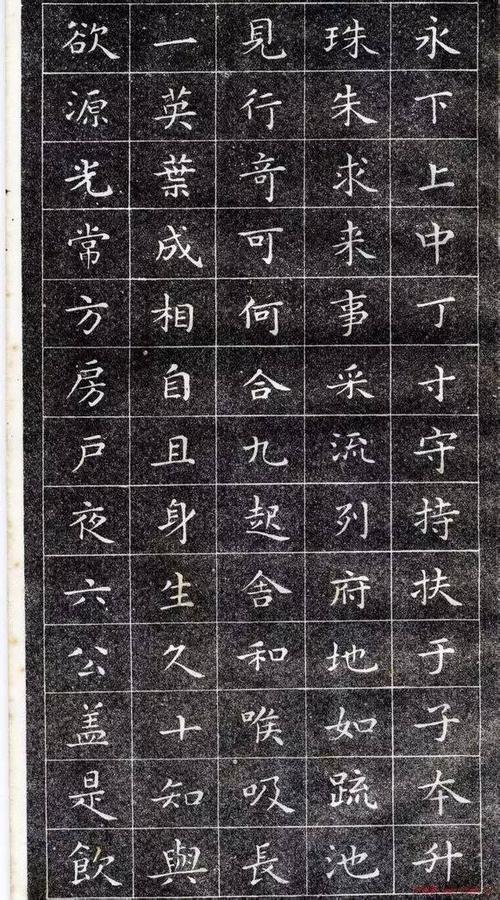 永下上中丁寸守持扶于子本升
珠朱求来事采流列府地如䟽池
見行竒可何合九起舎和唯吸長
一英葉成相自且身生久十知與
欲源光常方房戶夜六公盖是飲